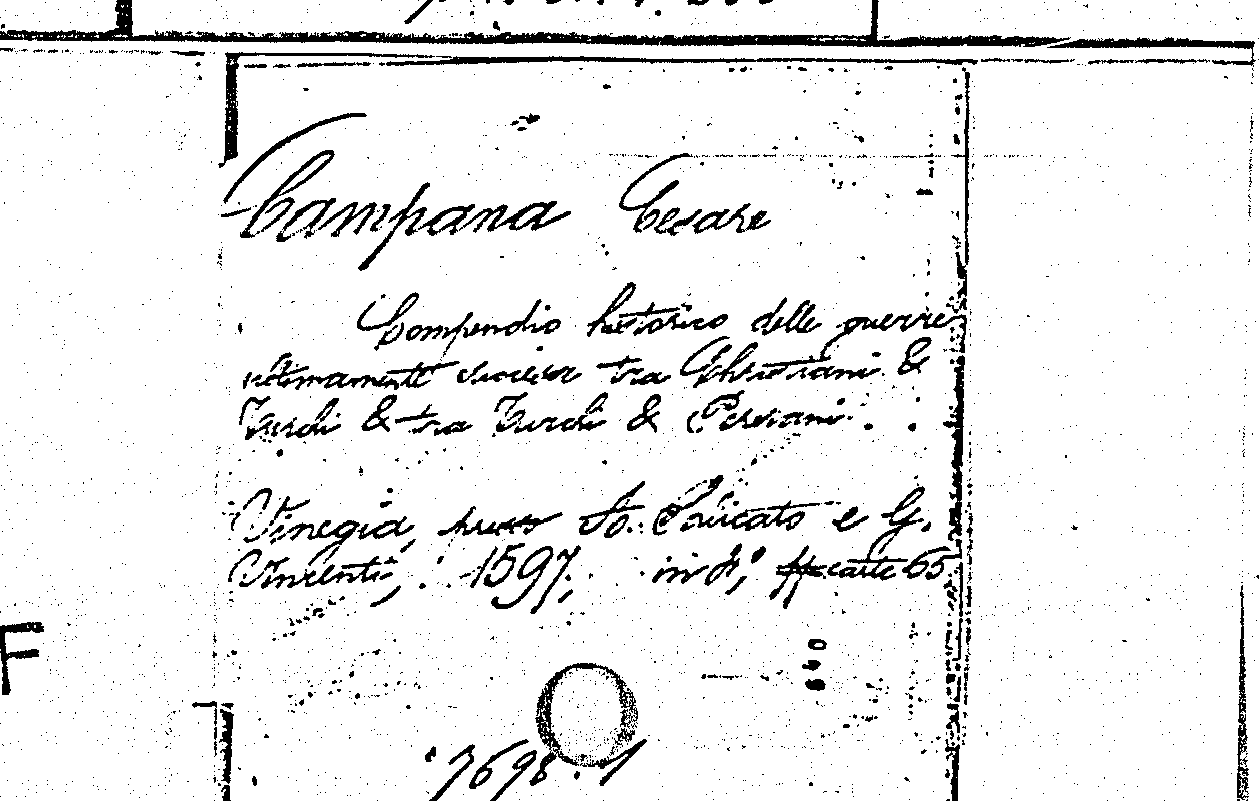 Campana Cesare
Compendio historico delle guerre
ultimamente successe tra Christiani &
Turchi & tra Turchi & Persiani . .
Vinegia, presso Io. e G.
Vincenti, 1597, in 4°, carte 65
F
7698 . 1